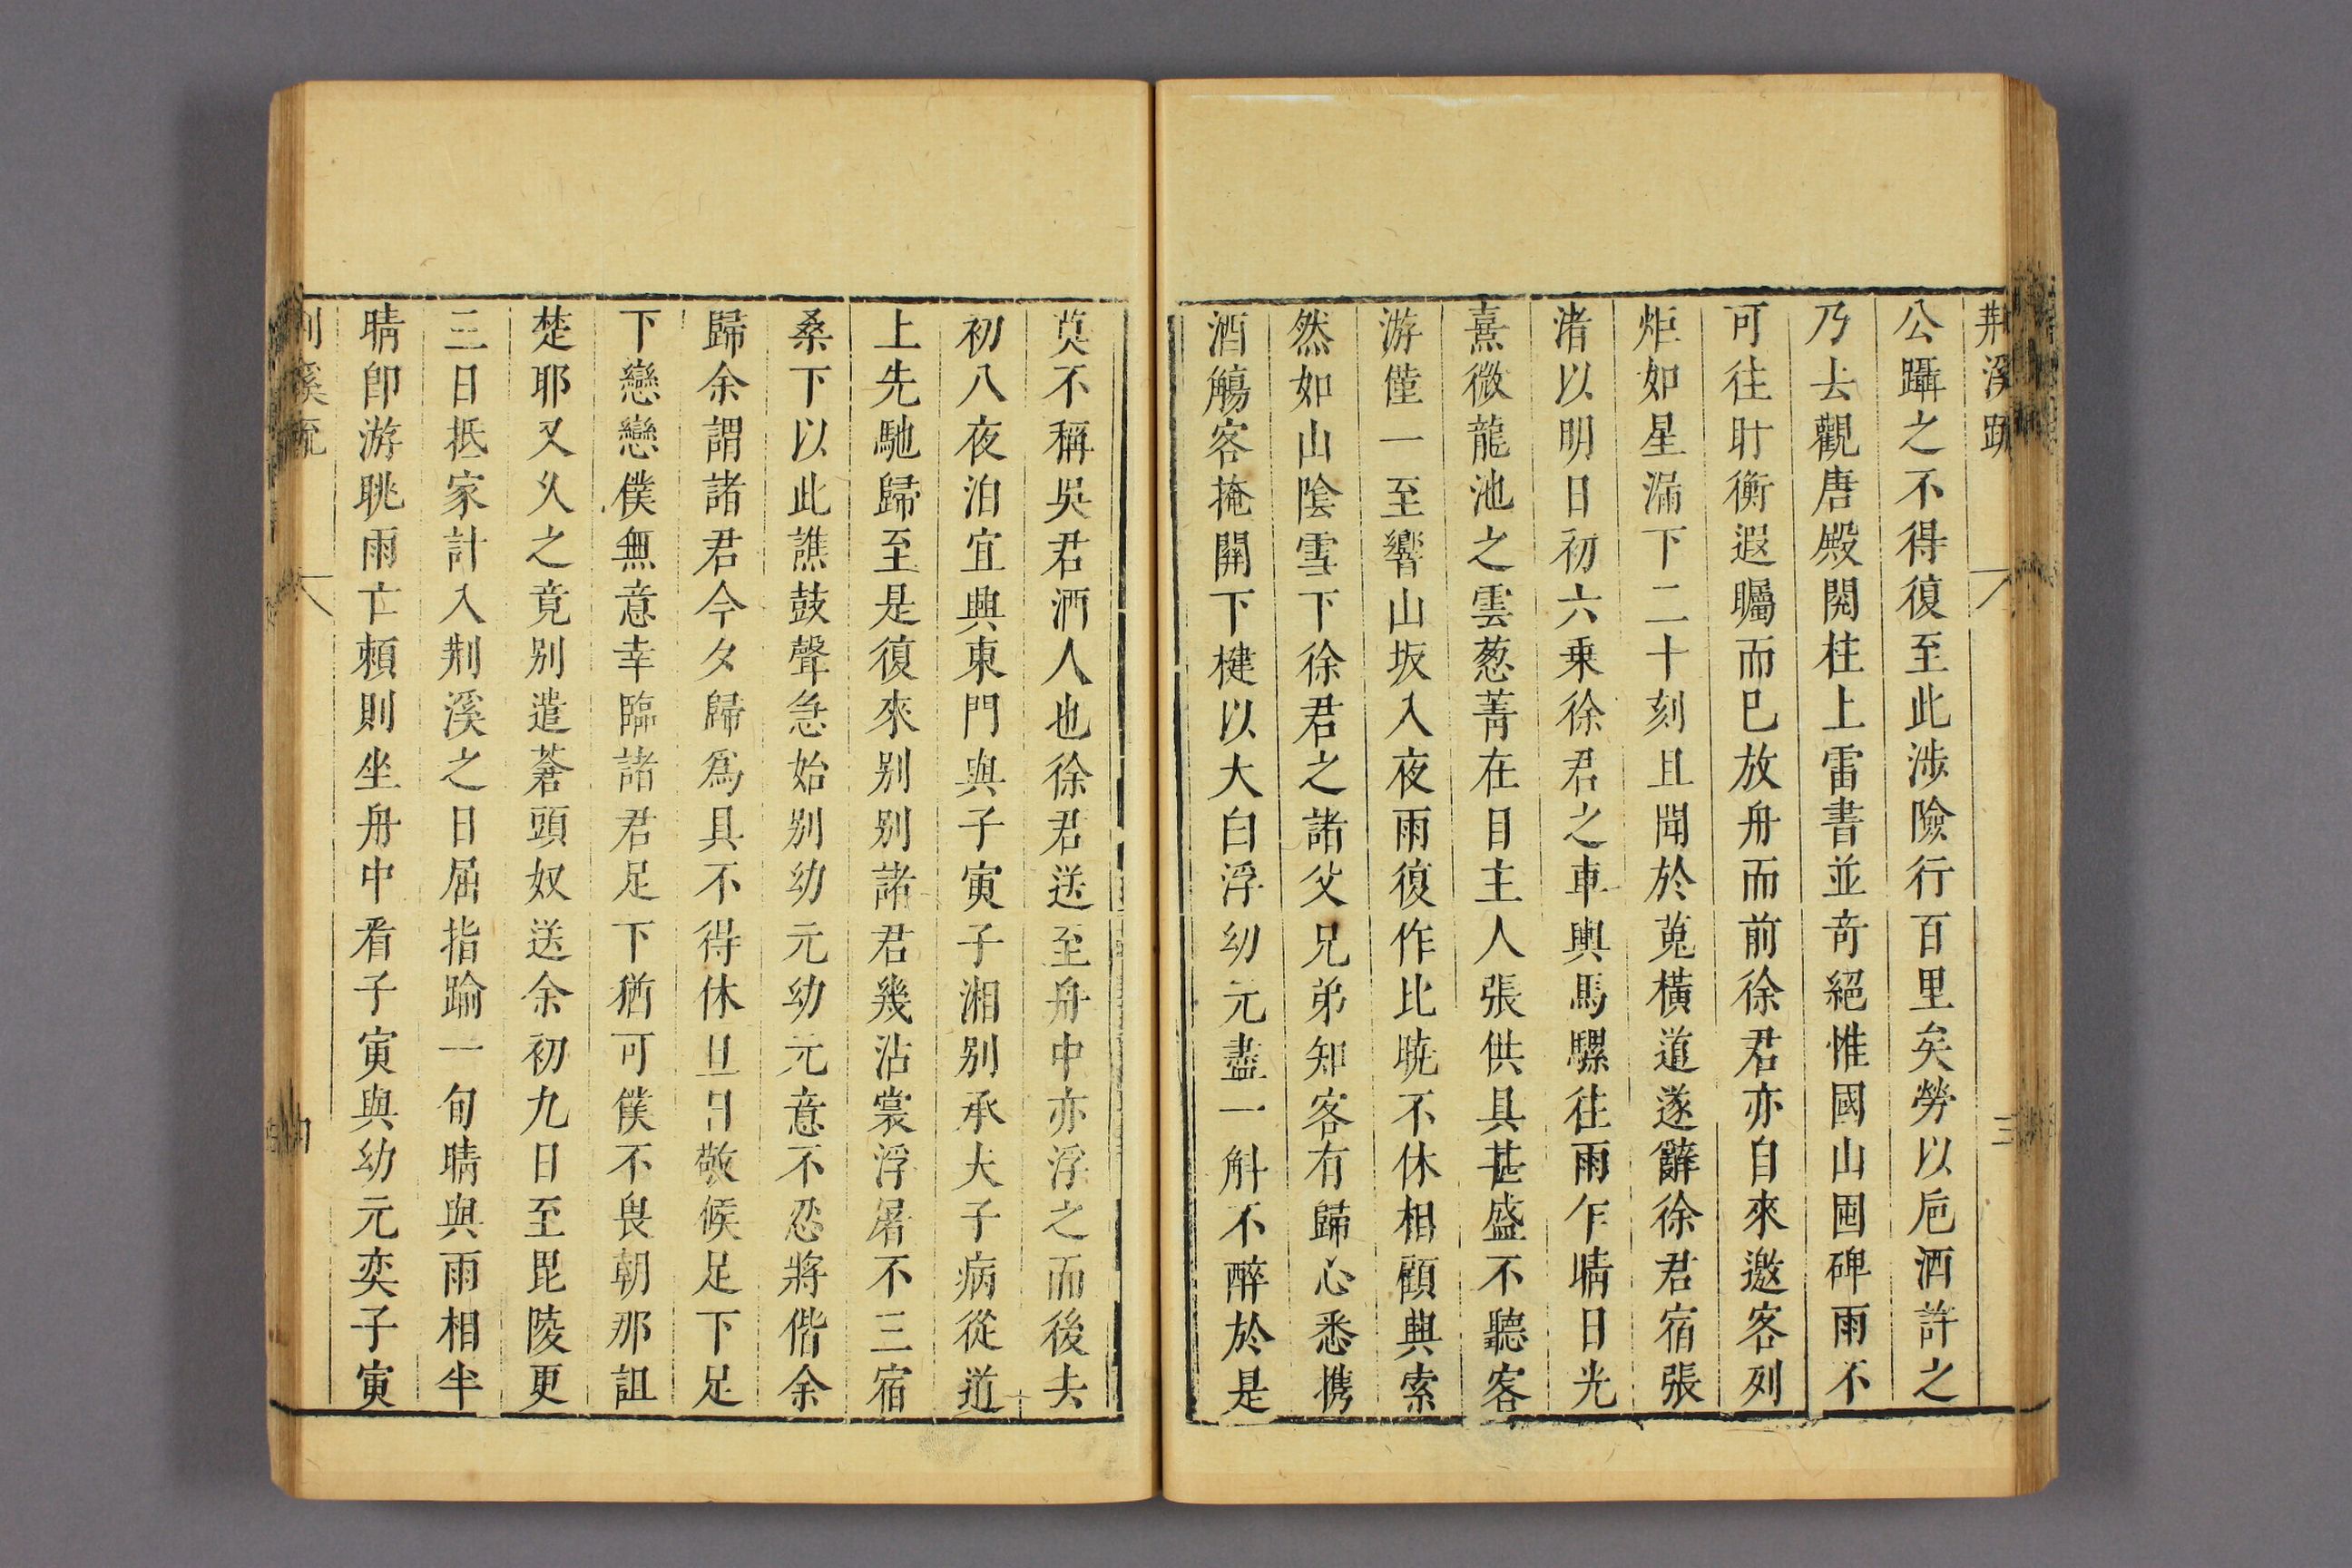 荆溪疏
三
公躡之不得復至此涉險行百里矣勞以巵酒許之
乃去觀唐殿閱柱上雷書並奇絕惟國山囤碑雨不
可往盱衡遐矚而已放舟而前徐君亦自來邀客列
炬如星漏下二十刻且聞於菟橫道遂辭徐君宿張
渚以明日初六乘徐君之車輿馬騾往雨乍晴日光
熹微龍池之雲葱菁在目主人張供具甚盛不聽客
游僅一至響山坂入夜雨復作比曉不休相顧興索
然如山陰雪下徐君之諸父兄弟知客有歸心悉携
酒觴客掩關下楗以大白浮幼元盡一斛不醉於是
莫不稱吳君酒人也徐君送至舟中亦浮之而後去
初八夜泊宜興東門與子寅子湘別承夫子病從道
上先馳歸至是復來別別諸君幾沾裳浮屠不三宿
桑下以此譙鼓聲急始別幼元幼元意不忍將偕余
歸余謂諸君今夕歸爲具不得休旦日敬候足下足
下戀戀僕無意幸臨諸君足下猶可僕不畏朝那詛
楚耶又久之竟別遣蒼頭奴送余初九日至毘陵更
三日抵家計入荆溪之日屈指踰一旬晴與雨相半
晴卽游眺雨亡賴則坐舟中看子寅與幼元奕子寅
荆溪疏